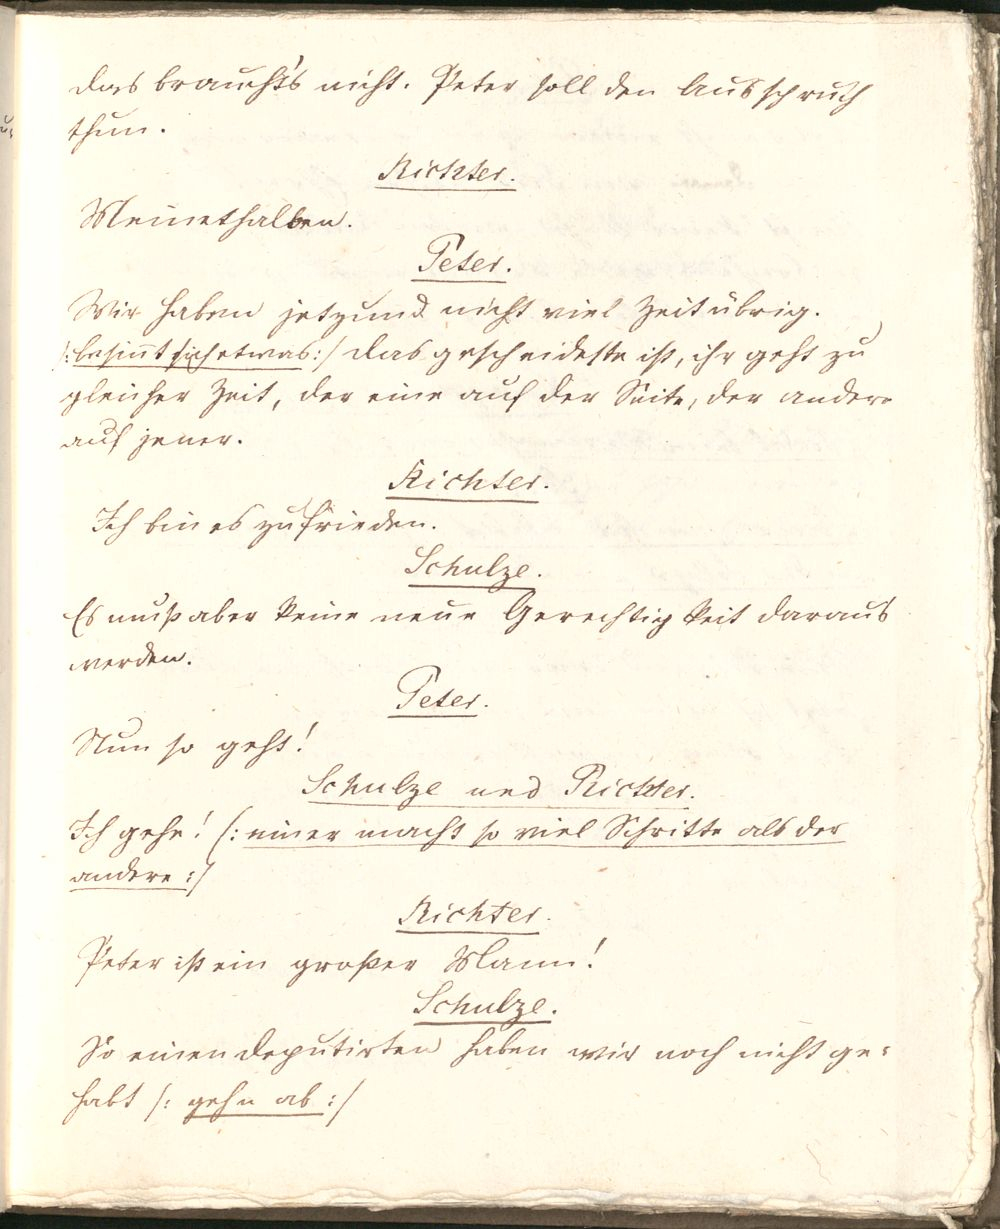 das braucht's nicht. Peter soll den Ausspruch
thun.
Richter.
Meinethalben.
Peter.
Wir haben jetzund nicht viel Zeit übrig.
/: besinnt sich etwas :/ das gescheideste ist, ihr geht zu
gleicher Zeit, der eine auf der Seite, der andere
auf jener.
Richter.
Ich bin es zufrieden.
Schulze.
Es muß aber keine neue Gerechtigkeit daraus
werden.
Peter.
Nun so geht!
Schulze und Richter.
Ich gehe! /: einer macht so viel Schritte als der
andere :/
Richter.
Peter ist ein großer Mann!
Schulze.
So einen Deputirten haben wir noch nicht ge=
habt /: gehn ab :/